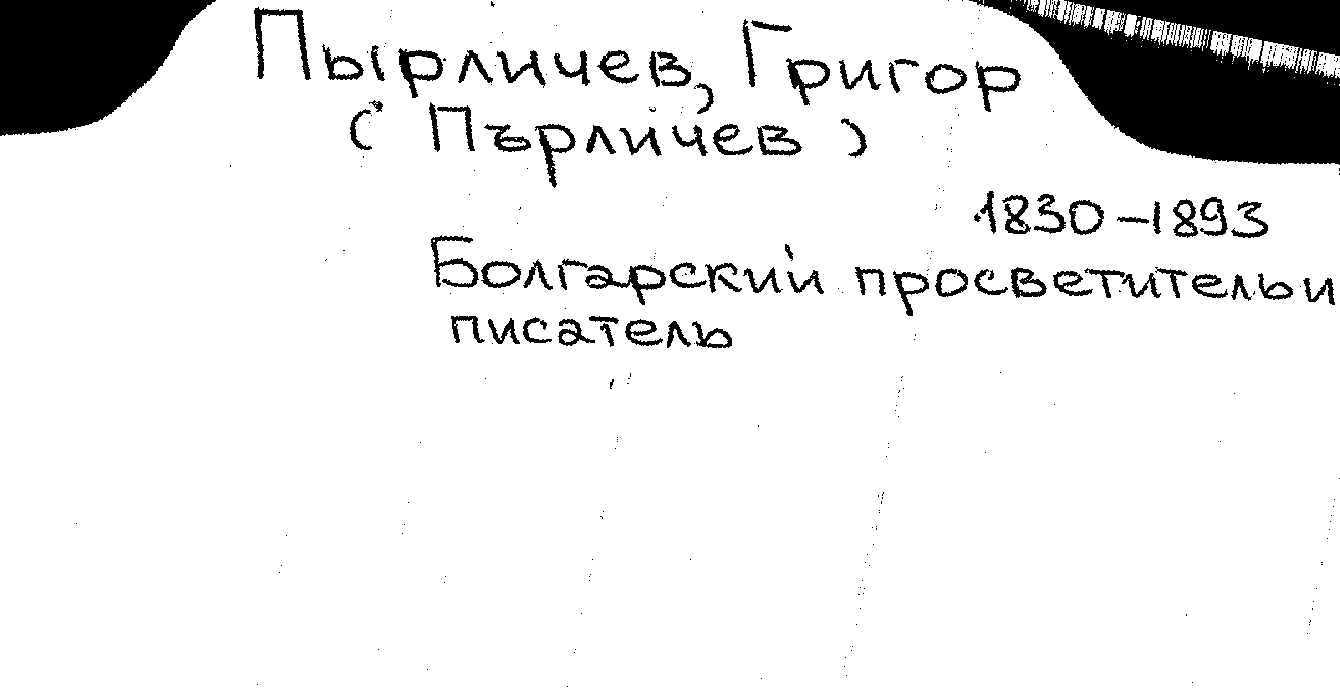 Пырличев, Григор
(Пърличев)
1830-1893
Болгарский просветитель и
писатель